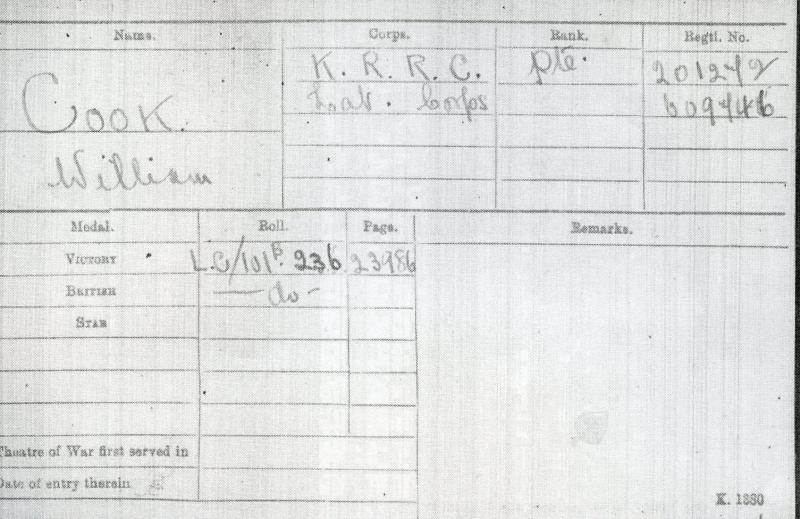 Name. Corps. Rank. Regtl. No.
COOK. K. R. R. C. Pte. 201272
William Lab. Corps 609746
Medal. Roll. Page. Remarks.
VICTORY L.C/101B. 236 23986
BRITISH — do —
STAR
Theatre of War first served in
Date of entry therein
K. 1380